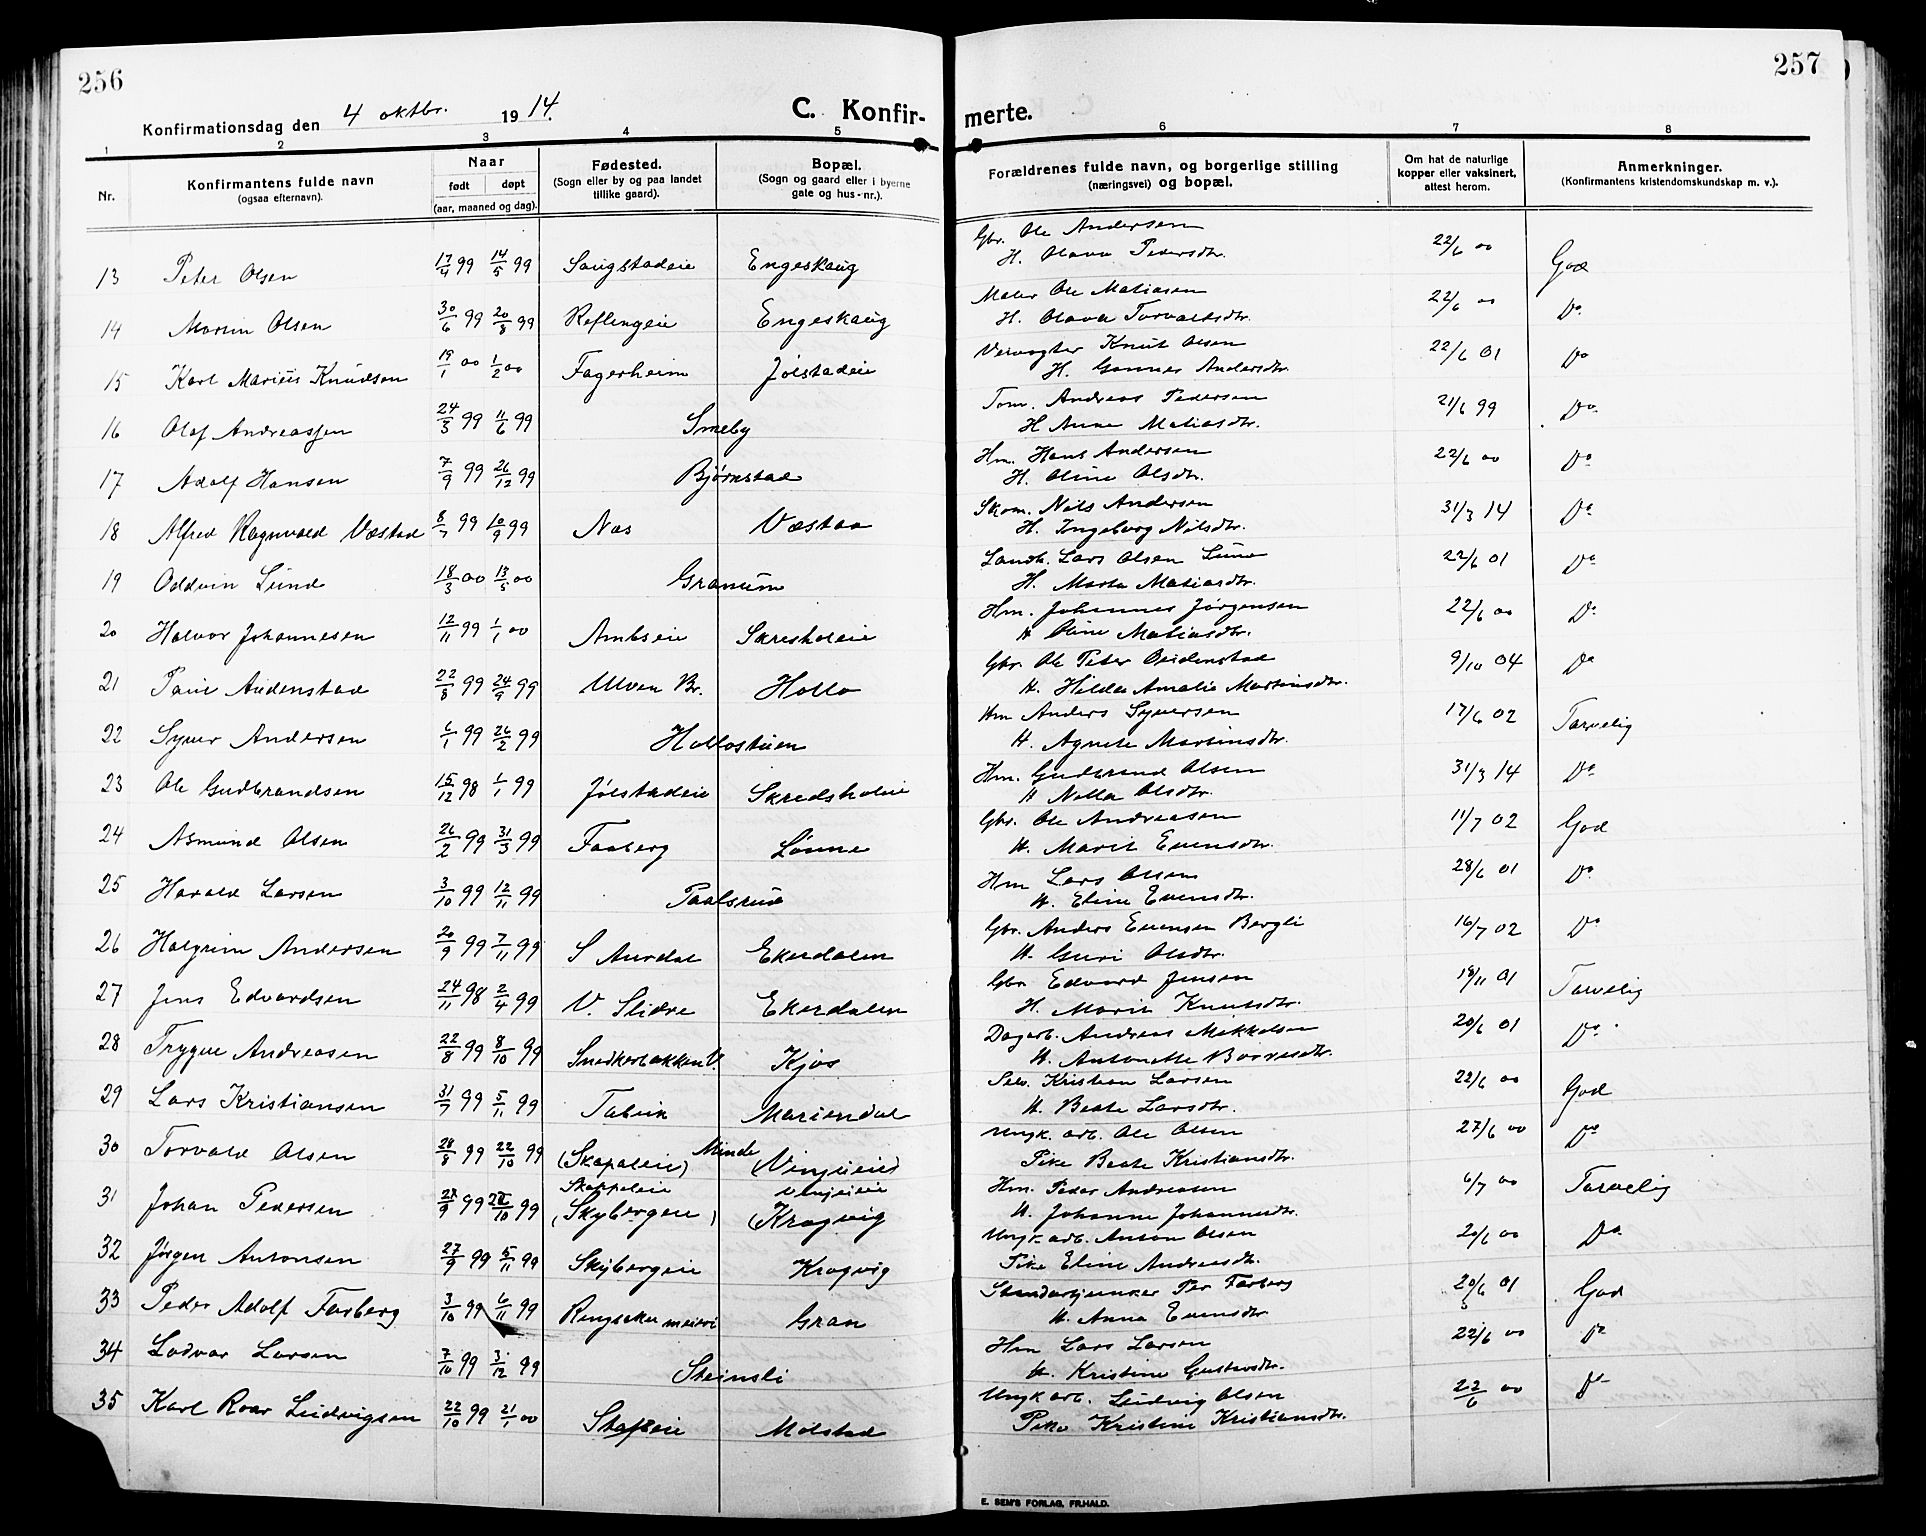 256
257
Konfirmationsdag den 4 oktbr. 1914.
C. Konfirmerte.
1 2 3 4 5 6 7 8
Nr.
Konfirmantens fulde navn
(ogsaa efternavn).
Naar
født døpt
(aar, maaned og dag).
Fødested.
(Sogn eller by og paa landet
tillike gaard).
Bopæl.
(Sogn og gaard eller i byerne
gate og hus-nr.).
Forældrenes fulde navn, og borgerlige stilling
(næringsvei) og bopæl.
Om hat de naturlige
kopper eller vaksinert,
attest herom.
Anmerkninger.
(Konfirmantens kristendomskundskap m. v.).
13 Peter Olsen 17/4 99 14/5 99 Saugstadeie Engeskaug Gbr. Ole Andersen 22/6 00 God
H. Olava Pedersdtr.
14 Martin Olsen 30/6 99 20/8 99 Reflingeie Engeskaug Maler Ole Matiasen 22/6 00 Do
H. Olava Torvaldsdtr.
15 Karl Marius Knudsen 19/1 00 1/2 00 Fagerheim Jølstadeie Veivogter Knut Olsen 22/6 01 Do
H. Gunnes Andersdtr.
16 Olaf Andreassen 24/3 99 11/6 99 Smeby Tom. Andreas Pedersen 21/6 99 Do
H Anna Matiasdtr.
17 Adolf Hansen 7/9 99 26/12 99 Bjørnstad Hm. Hans Andersen 22/6 00 Do
H. Oline Olsdtr.
18 Alfred Ragnvald Væstad 8/7 99 10/9 99 Næs Væstad Skom. Nils Andersen 31/3 14 Do
H. Ingeborg Nilsdtr.
19 Oddvin Lund 18/3 00 13/5 00 Granum Landh. Lars Olsen Lund 22/6 01 Do
H. Marta Matiasdtr.
20 Halvor Johannesen 12/11 99 1/1 00 Ambseie Skresholeie Hm. Johannes Jørgensen 22/6 00 Do
H Oline Matiasdtr.
21 Paul Audenstad 22/8 99 24/9 99 Ulven Br. Hollo Gbr. Ole Peter Audenstad 9/10 04 Do
H. Hilda Amalie Martinsdtr.
22 Syver Andersen 6/1 99 26/2 99 Hollostuen Hm Anders Syversen 17/6 02 Tarvelig
H. Agnete Martinsdtr.
23 Ole Gudbrandsen 15/12 98 1/1 99 Jølstadeie Skredsholeie Hm. Gudbrand Olsen 31/3 14 Do
H Nella Olsdtr.
24 Asmund Olsen 26/2 99 31/3 99 Faaberg Lønne Gbr. Ole Andreasen 11/7 02 God
H. Marit Evensdtr.
25 Harald Larsen 3/10 99 12/11 99 Paalsrud Hm Lars Olsen 28/6 01 Do
H. Eline Evensdtr.
26 Halgrim Andersen 20/9 99 7/11 99 S Aurdal Ekerdalen Gbr. Anders Evensen Bergli 16/7 02 Do
H. Guri Olsdtr.
27 Jens Edvardsen 24/11 98 2/4 99 V. Slidre Ekerdalen Gbr Edvard Jensen 18/11 01 Tarvelig
H. Marit Knutsdtr.
28 Trygve Andreasen 22/8 99 8/10 99 Snedkerbakken V. Kjos Dagarb. Andreas Mikkelsen 20/6 01 Do
H. Antonette Borresdtr.
29 Lars Kristiansen 31/7 99 5/11 99 Fabrik Mariendal Selv. Kristian Larsen 22/6 00 God
H. Beate Larsdtr.
30 Torvald Olsen 28/8 99 22/10 99 (Skapaleie) Minde (Vinjueie) Ungk. arb. Ole Olsen 27/6 00 Do
Pike Beate Kristiansdtr.
Skappaleie Vinjeieie
31 Johan Pedersen 27/9 99 22/10 99 (Skybergeie) (Kragvig Hm. Peder Andreasen 6/7 00 Tarvelig
H. Johanne Johannesdtr.
32 Jørgen Antonsen 27/9 99 5/11 99 Skybergeie Kragvig Ungk. arb. Anton Olsen 20/6 00 Do
Pike Eline Andreasdtr.
33 Peder Adolf Faaberg 3/10 99 6/11 99 Ringsaker meieri Gran Standartjunker Per Faaberg 20/6 01 God
H. Anna Evensdtr.
34 Lodvar Larsen 7/10 99 3/12 99 Steinsli Hm Lars Larsen 22/6 00 Do
H. Kristine Gustavsdtr.
35 Karl Roar Ludvigsen 22/10 99 21/1 00 Stafseie Molstad Ungk. arb. Ludvig Olsen 22/6 00 Do
Pike Kristine Kristiansdtr.
E. SEM'S FORLAG, FR.HALD.